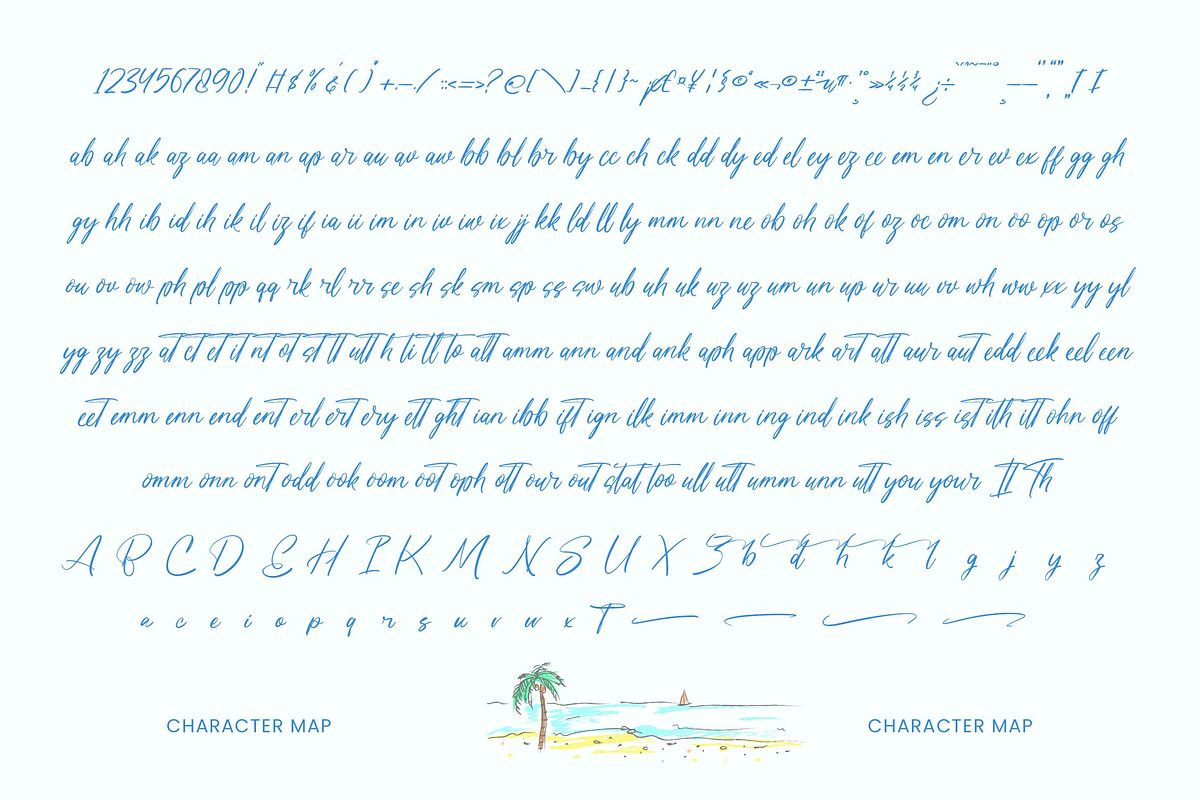 1234567890!" # $ % & ( ) * + . — . / : ; < = > ? @ [ \ ] _ { | } ~ ¡ ¢ £ ¤ ¥ ¦ § © ª « ¬ ® ± ² ³ µ ¶ · ¸ ¹ º » ¼ ½ ¾ ¿ ÷
ab ah ak az aa am an ap ar au av aw bb bl br by cc ch ck dd dy ed el ey ez ee em en er ev ex ff gg gh
gy hh ib id ih ik il iz if ia ii im in iv iw ix jj kk ld ll ly mm nn ne ob oh ok of oz oc om on oo op or os
ou ov ow ph pl pp qq rk rl rr se sh sk sm sp ss sw ub uh uk uz uz um un up ur uu vv wh ww xx yy yl
yg zy zz at ct et it nt ot st tt utt h ti tl to att amm ann and ank aph app ark art att aur aut edd eek eel een
eet emm enn end ent erl ert ery ett ght ian ibb ift ign ilk imm inn ing ind ink ish iss ist ith itt ohn off
omm onn ont odd ook oom oot oph ott our out stat too ull ult umm unn utt you your II Th
A B C D E H I K M N S U X Z b d h k l g j y z
a c e i o p q r s u v w x T
CHARACTER MAP CHARACTER MAP